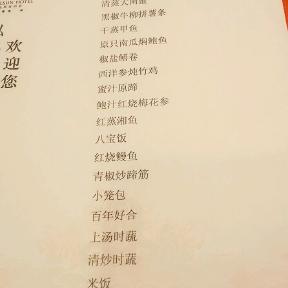 SUN HOTEL
欢
迎
您
清蒸大闸蟹
黑椒牛柳拼薯条
干蒸甲鱼
原只南瓜焗鲍鱼
椒盐鳝卷
西洋参炖竹鸡
蜜汁原蹄
鲍汁红烧梅花参
红蒸湘鱼
八宝饭
红烧鳗鱼
青椒炒蹄筋
小笼包
百年好合
上汤时蔬
清炒时蔬
米饭